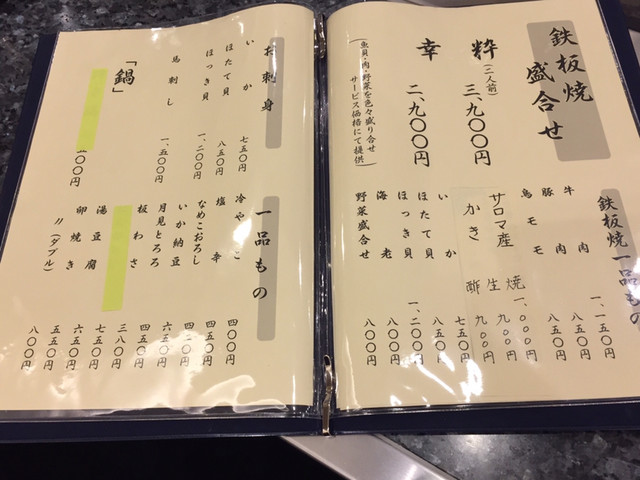 鉄板焼
盛合せ
粋(二人前) 三、九〇〇円
幸 二、九〇〇円
(魚貝・肉・野菜を色々盛り合せ
サービス価格にて提供)
鉄板焼一品もの
牛肉 一、一五〇円
豚肉 八五〇円
鳥モモ 八〇〇円
サロマ産
かき
焼 一、〇〇〇円
生 九〇〇円
酢 九〇〇円
いか 七五〇円
ほたて貝
ほっき貝 一、二〇〇円
海老 八〇〇円
野菜盛合せ 八〇〇円
お刺身
いか 七五〇円
ほたて貝 八五〇円
ほっき貝 一、二〇〇円
馬刺し 一、五〇〇円
「鍋」
〇〇円
一品もの
冷やっこ 四〇〇円
塩辛 五五〇円
なめこおろし 四五〇円
いか納豆 六五〇円
月見とろろ 四五〇円
板わさ 四五〇円
三八〇円
湯豆腐 七五〇円
卵焼き 五五〇円
〃(ダブル) 八〇〇円